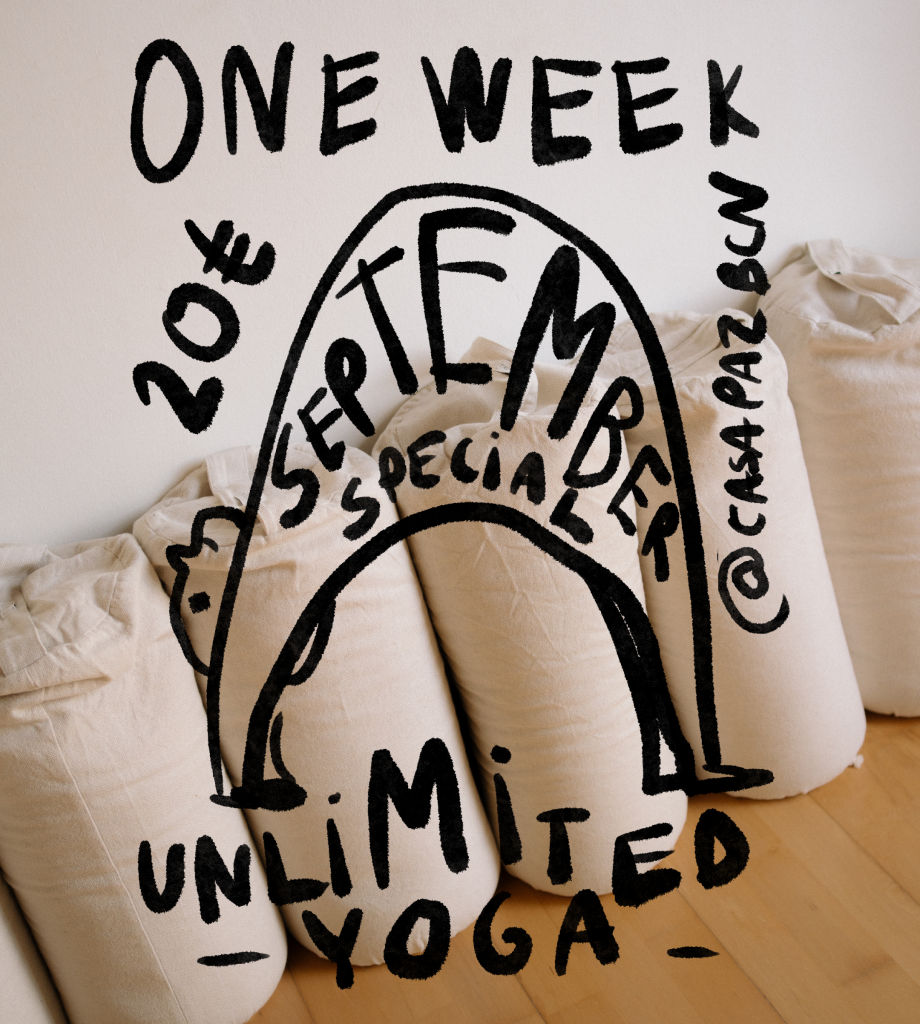 ONE WEEK
20€
SEPTEMBER
SPECiAL
@CASAPAZBCN
UNLiMiTED
- YOGA -